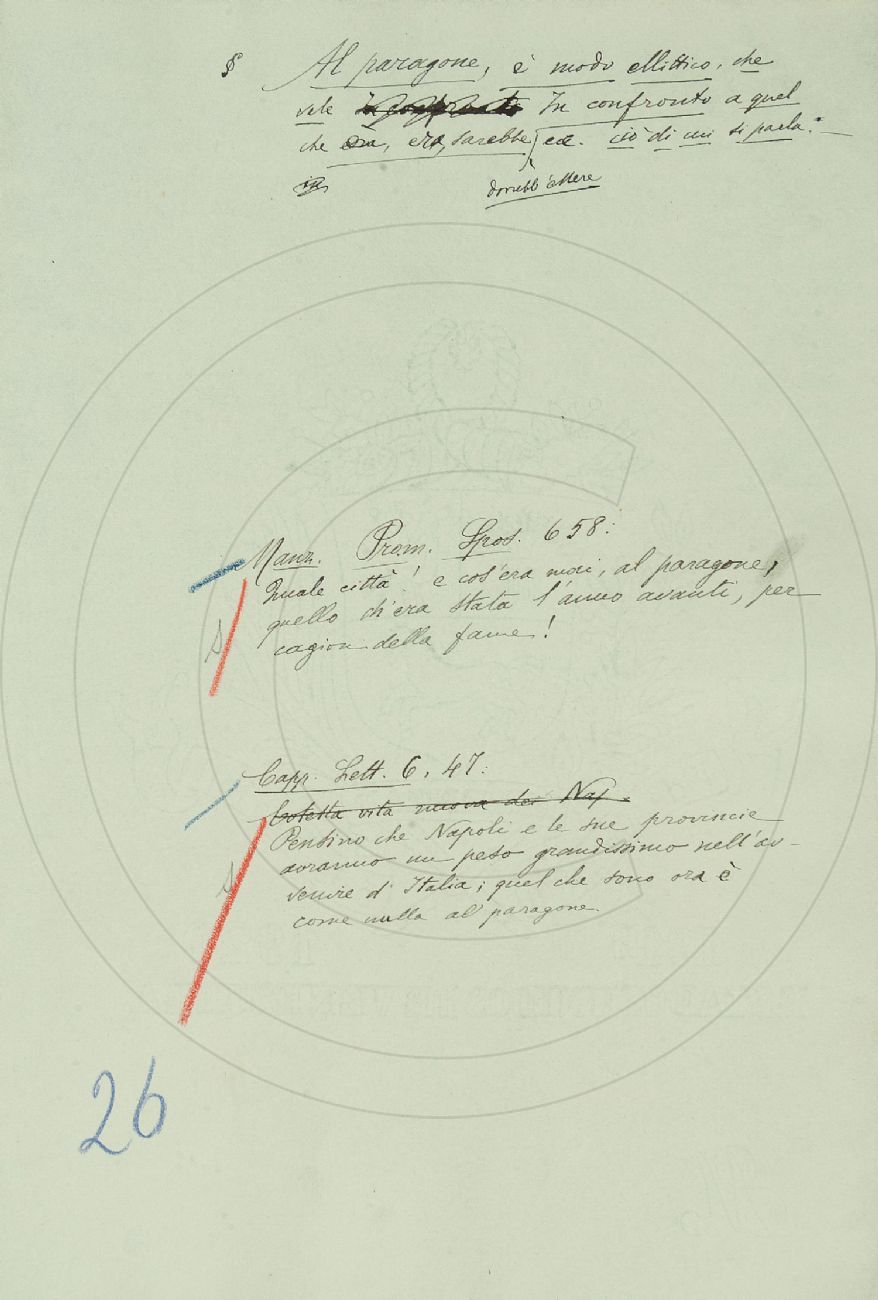 § Al paragone, è modo ellittico, che
vale In confronto a quel
che era, era, sarebbe, ec. ciò di cui si parla: —
dovrebb'essere
Manz. Prom. Spos. 658:
Quale città! e cos'era mai, al paragone,
quello ch'era stata l'anno avanti, per
cagion della fame!
Capp. Lett. 6, 47:
vita nuova dei Nap.
Pensino che Napoli e le sue provincie
avranno un peso grandissimo nell'av-
venire d'Italia; quel che sono ora è
come nulla al paragone.
26